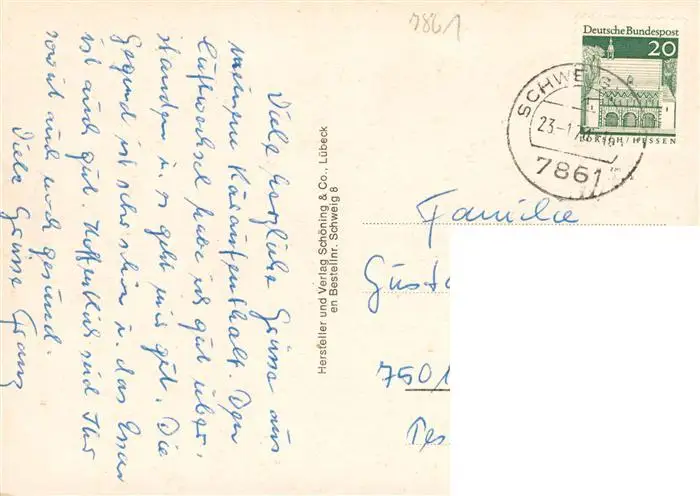 7861
Deutsche Bundespost
20
LORSCH/HESSEN
SCHWEIG
23.-1
7861
Viele herzliche Grüsse aus
meinem Kuraufenthalt. Den
Luftwechsel habe ich gut über-
standen u. es geht mir gut. Die
Gegend ist schön u. das Essen
ist auch gut. Hoffentlich seid Ihr
soweit auch noch gesund.
Viele Grüsse Franz
Hersteller und Verlag Schöning & Co., Lübeck
en Bestellnr. Schweig 8
Familie
Gusta
7501